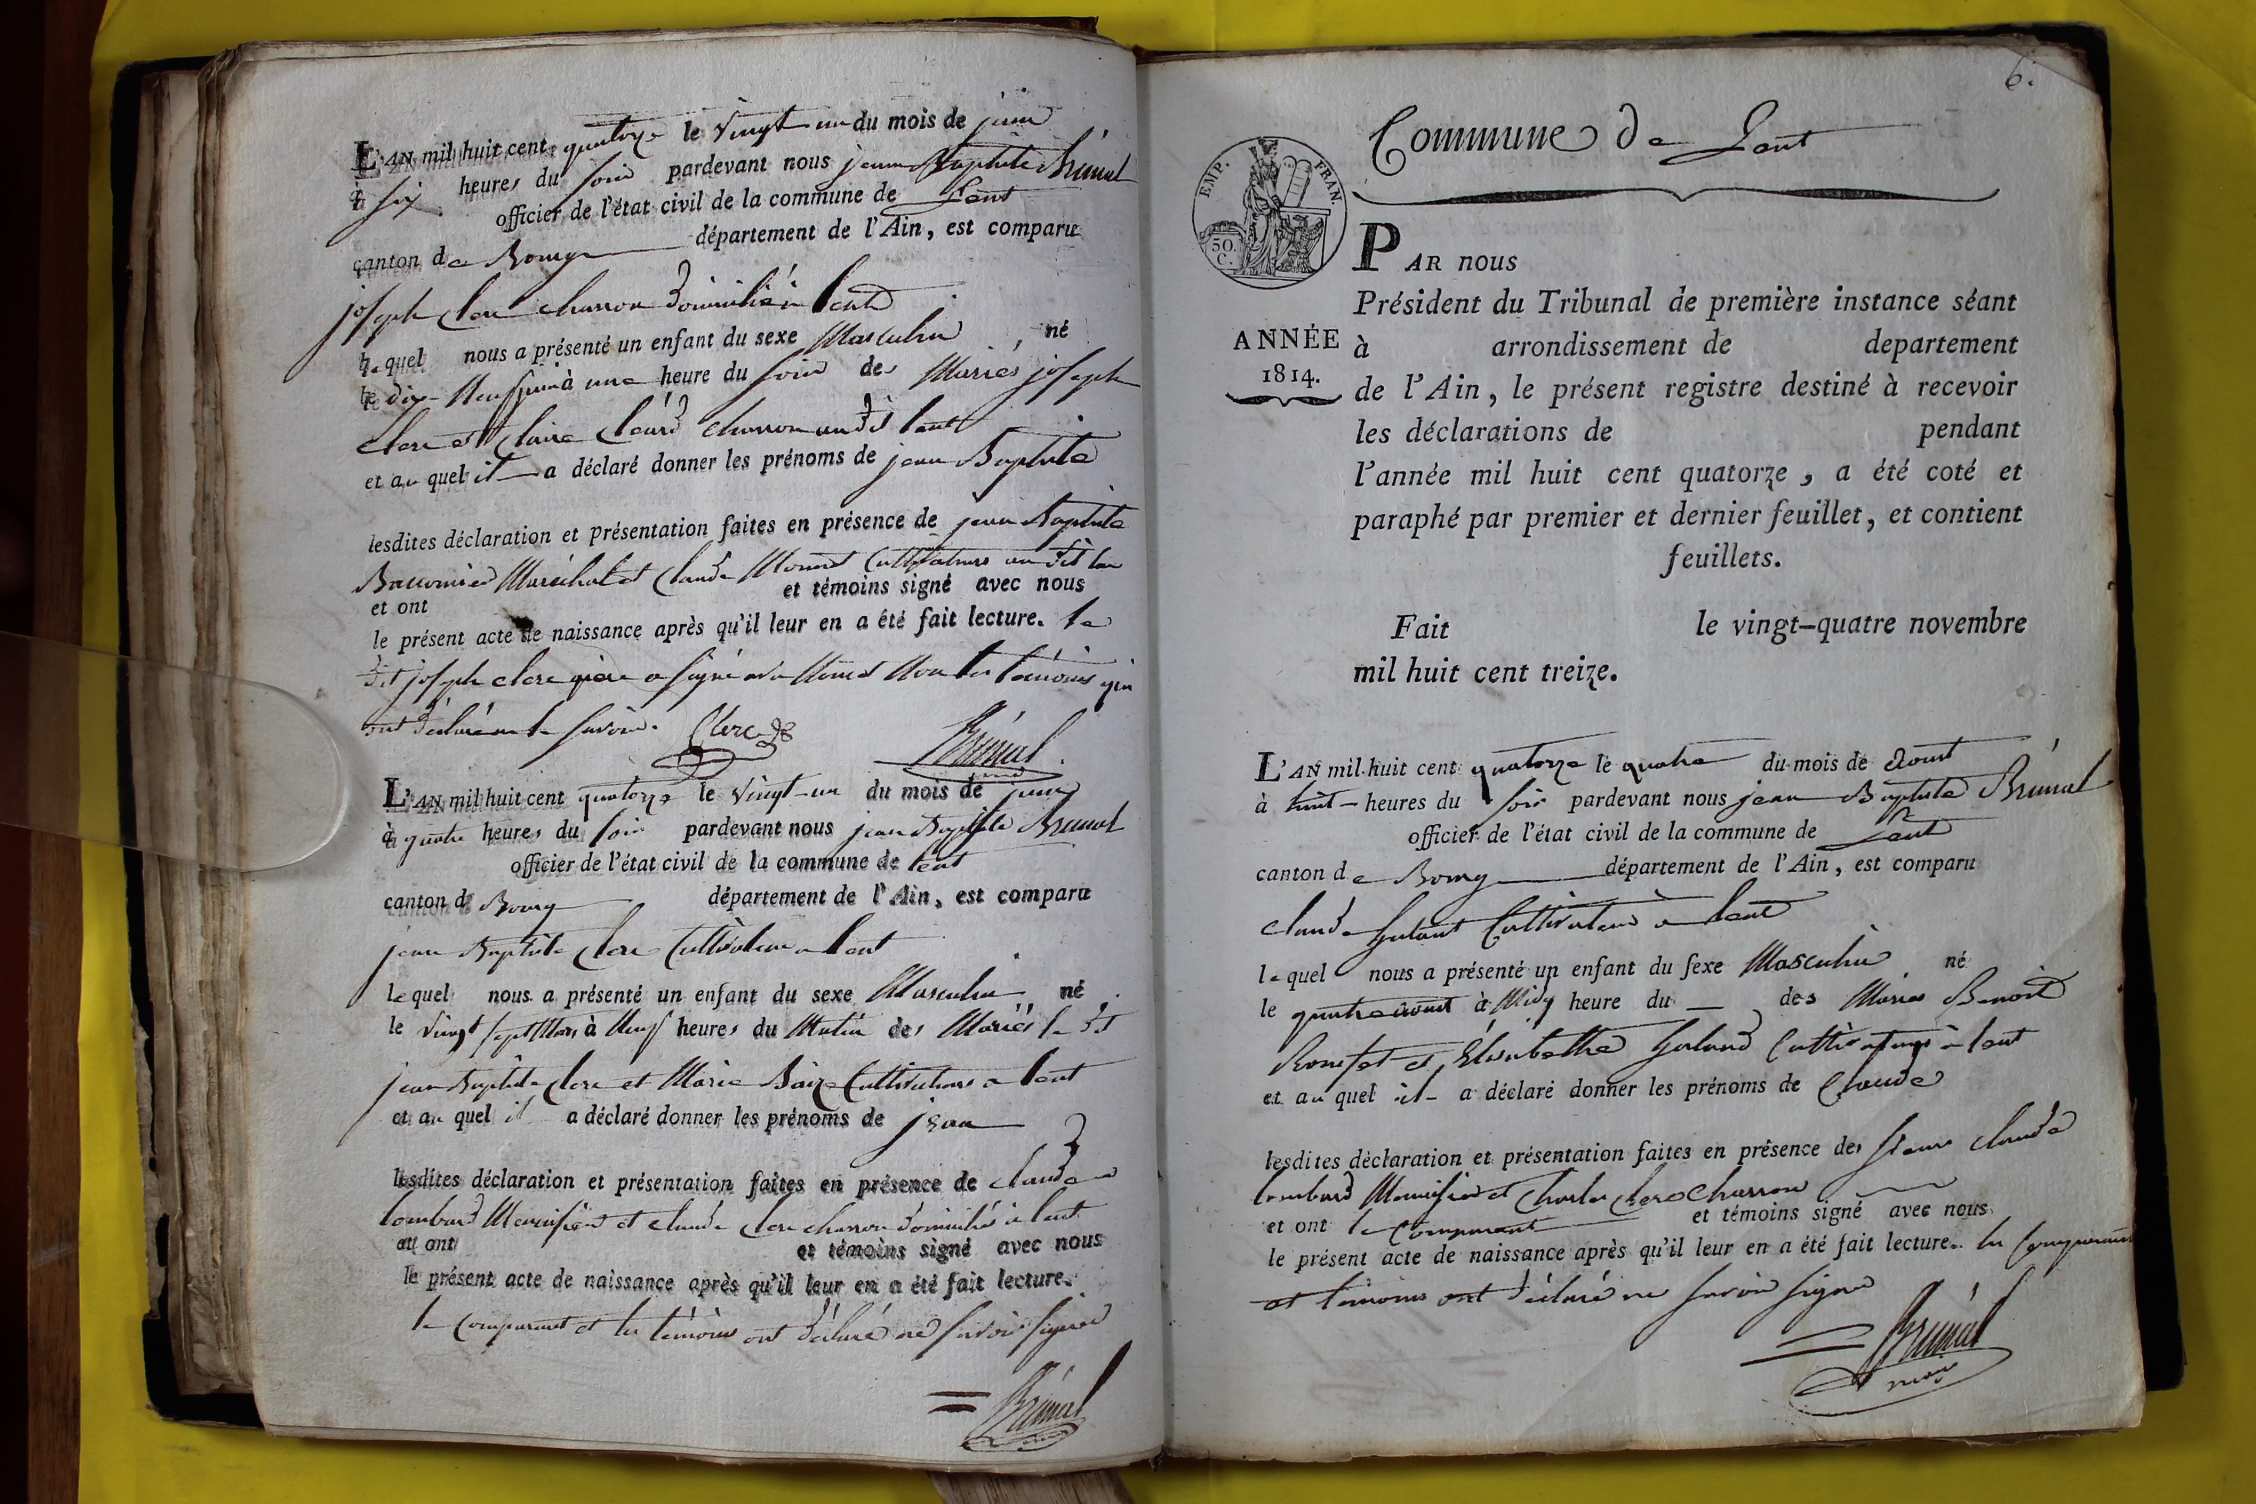 L'AN mil huit cent quatorze le vingt-un du mois de juin
à six heures du soir pardevant nous jean Baptiste Brunal
officier de l'état civil de la commune de Lent
canton de Bourg département de l'Ain, est comparu
joseph Clerc charron domicilié à lent
lequel nous a présenté un enfant du sexe Masculin né
le dix-Neuf juin à une heure du soir des Mariés joseph
Clerc et Claire charron audit lent
et au quel il a déclaré donner les prénoms de jean Baptiste
lesdites déclaration et présentation faites en présence de jean Baptiste
Maréchal et Claude Cultivateurs audit lent
et ont et témoins signé avec nous
le présent acte de naissance après qu'il leur en a été fait lecture. le
dit joseph clerc père a signé avec Nous Non les témoins qui
ont déclaré ne le savoir. Clerc
Brunal
L'AN mil huit cent quatorze le vingt-un du mois de juin
à quatre heures du soir pardevant nous jean Baptiste Brunal
officier de l'état civil de la commune de lent
canton de Bourg département de l'Ain, est comparu
jean Baptiste Clerc Cultivateur a lent
lequel nous a présenté un enfant du sexe Masculin né
le vingt sept Mars à Neuf heures du Matin des Mariés le dit
jean Baptiste Clerc et Marie Cultivateurs a lent
et au quel il a déclaré donner les prénoms de jean
lesdites déclaration et présentation faites en présence de claude
lombard Menuisier et claude Clerc charron domiciliés à lent
et ont et témoins signé avec nous
le présent acte de naissance après qu'il leur en a été fait lecture.
le comparant et les témoins ont déclaré ne savoir signer
Brunal
6.
Commune de Lent
EMP. FRAN.
50.
C.
ANNÉE
1814.
PAR nous
Président du Tribunal de première instance séant
à arrondissement de departement
de l'Ain, le présent registre destiné à recevoir
les déclarations de pendant
l'année mil huit cent quatorze, a été coté et
paraphé par premier et dernier feuillet, et contient
feuillets.
Fait le vingt-quatre novembre
mil huit cent treize.
L'AN mil huit cent quatorze le quatre du mois de aout
à huit heures du soir pardevant nous jean Baptiste Brunal
officier de l'état civil de la commune de Lent
canton de Bourg département de l'Ain, est comparu
claude Cultivateur à lent
lequel nous a présenté un enfant du sexe Masculin né
le quatre aout à Midy heure du — des Mariés Benoit
et Elisabethe Cultivateurs à lent
et au quel il a déclaré donner les prénoms de Claude
lesdites déclaration et présentation faites en présence des sieurs claude
lombard Menuisier et Charles Clerc Charron
et ont le Comparant et témoins signé avec nous
le présent acte de naissance après qu'il leur en a été fait lecture. les Comparant
et témoins ont déclaré ne savoir signer
Brunal